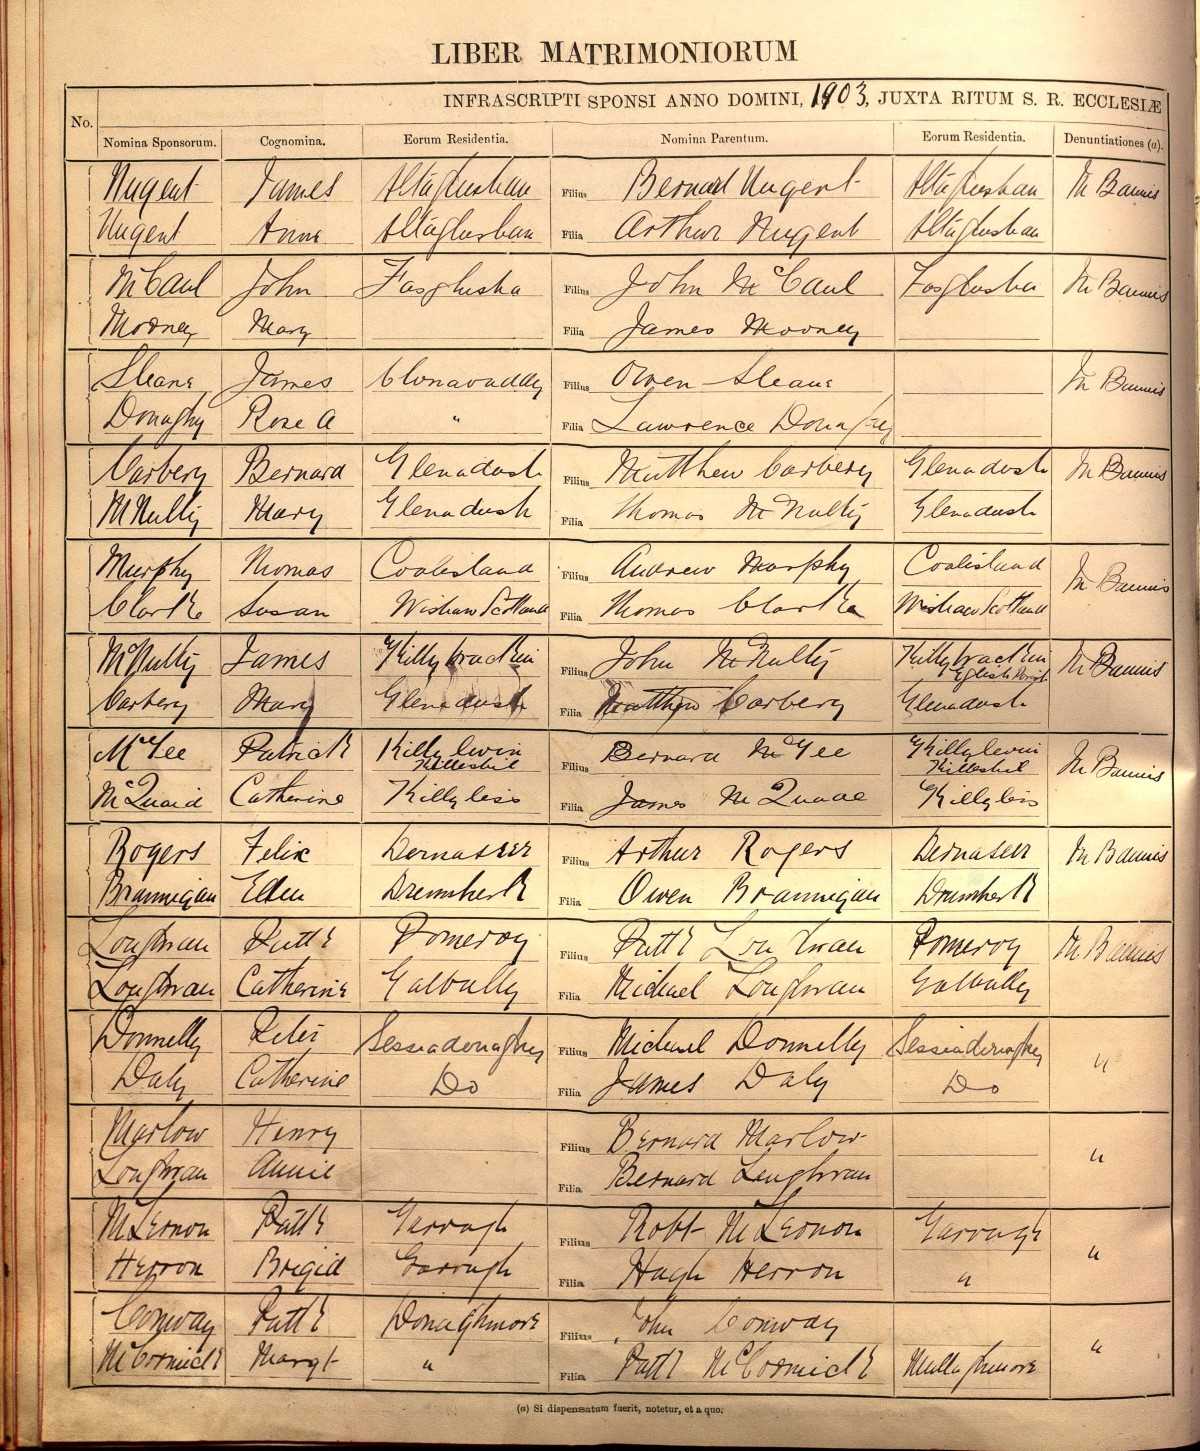 LIBER MATRIMONIORUM
No. INFRASCRIPTI SPONSI ANNO DOMINI, 1903, JUXTA RITUM S. R. ECCLESIÆ
Nomina Sponsorum. Cognomina. Eorum Residentia. Nomina Parentum. Eorum Residentia. Denuntiationes (a).
Nugent James Altaglushan Filius Bernard Nugent Altaglushan In Bannis
Nugent Anne Altaglushan Filia Arthur Nugent Altaglushan
McCaul John Fasglusha Filius John McCaul Fasglusha In Bannis
Mooney Mary Filia James Mooney
Sleane James Clonavaddy Filius Owen Sleane In Bannis
Donaghy Rose A " Filia Lawrence Donaghy
Carbery Bernard Glenadush Filius Matthew Carbery Glenadush In Bannis
McNulty Mary Glenadush Filia Thomas McNulty Glenadush
Murphy Thomas Coalisland Filius Andrew Murphy Coalisland In Bannis
Clarke Susan Wishaw Scotland Filia Thomas Clarke Wishaw Scotland
McNulty James Killybracken Filius John McNulty Killybracken Eglish Parish In Bannis
Carbery Mary Glenadush Filia Matthew Carbery Glenadush
McGee Patrick Killylevin Killeshil Filius Bernard McGee Killylevin Killeshil In Bannis
McQuaid Catherine Killyliss Filia James McQuade Killyliss
Rogers Felix Dernaseer Filius Arthur Rogers Dernaseer In Bannis
Brannigan Ellen Drumherk Filia Owen Brannigan Drumherk
Loughran Pattk Pomeroy Filius Pattk Loughran Pomeroy In Bannis
Loughran Catherine Galbally Filia Michael Loughran Galbally
Donnelly Peter Sessiadonaghy Filius Michael Donnelly Sessiadonaghy "
Daly Catherine Do Filia James Daly Do
Marlow Henry Filius Bernard Marlow "
Loughran Annie Filia Bernard Loughran
McLernon Pattk Garvagh Filius Robt McLernon Garvagh "
Herron Brigid Garvagh Filia Hugh Herron "
Conway Pattk Donaghmore Filius John Conway "
McCormick Margt " Filia Pattk McCormick Mullaghmore
(a) Si dispensatum fuerit, notetur, et a quo.